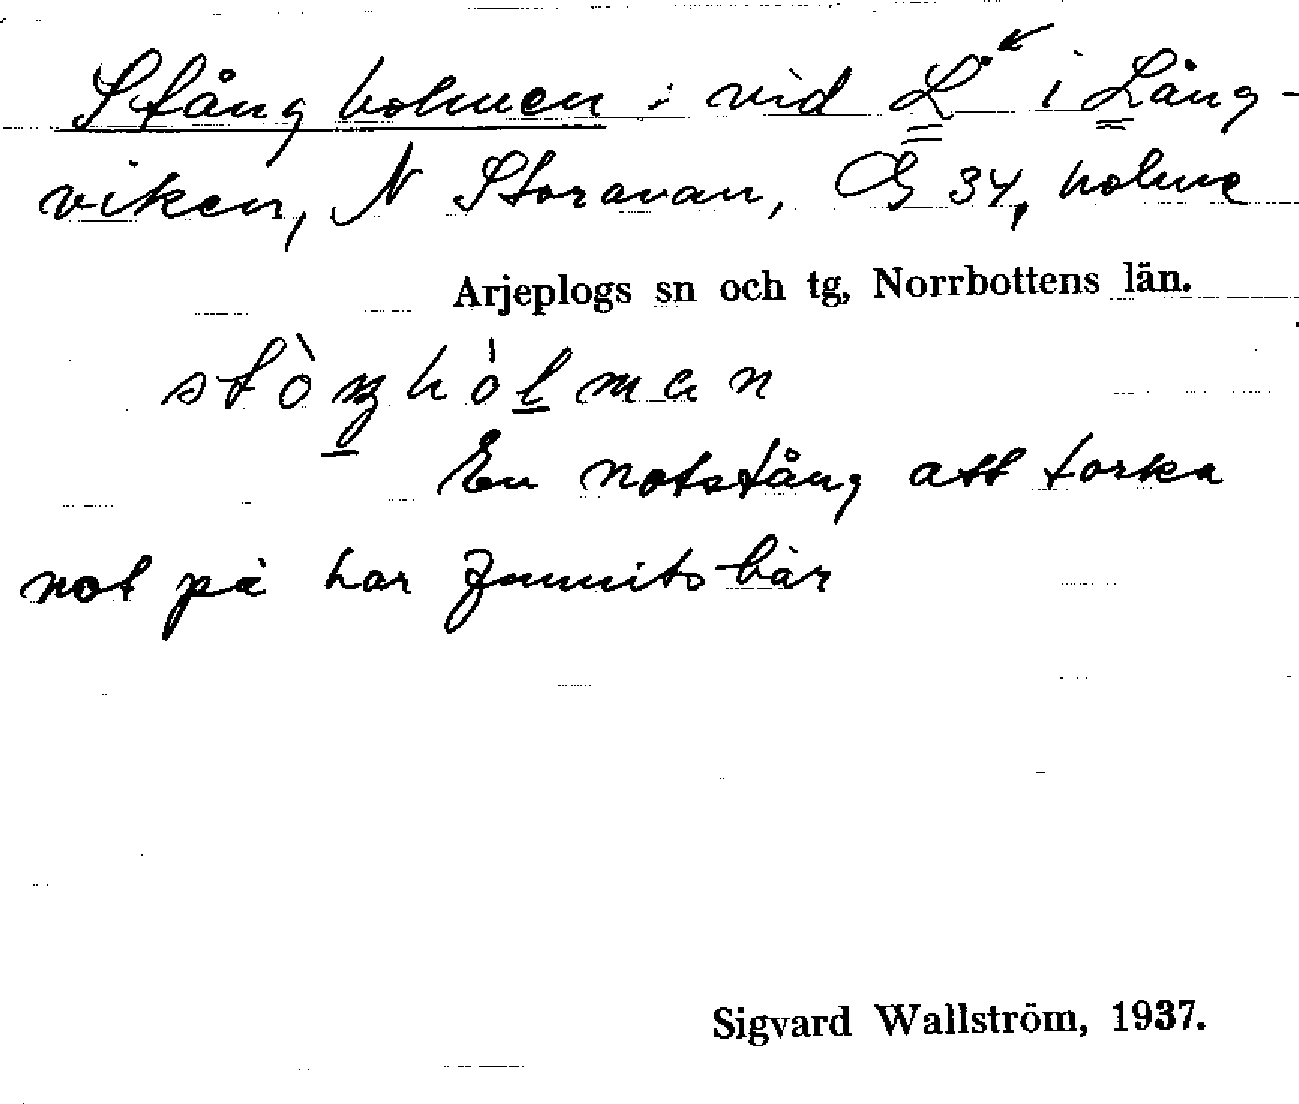 Stångholmen : vid L i Lång-
viken, N Storavan, G 34, holme
Arjeplogs sn och tg, Norrbottens län.
stòŋhólman
En notstång att torka
not på har funnits här
Sigvard Wallström, 1937.